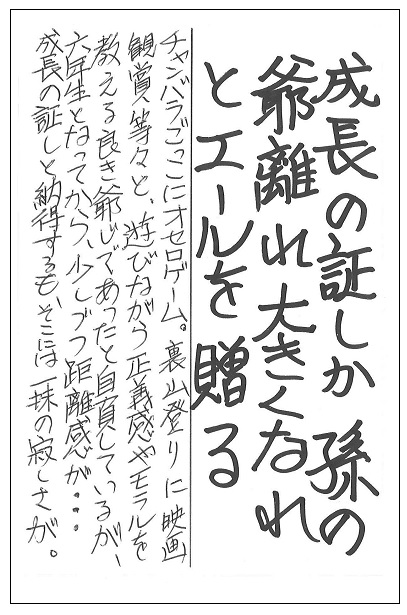 成長の証しか 孫の
爺離れ 大きくなれ
とエールを 贈る
チャンバラごっこにオセロゲーム。裏山登りに映画
観賞等々と、遊びながら正義感やモラルを
教える良き爺じであったと自負しているが、
六年生となってから、少しづつ距離感が・・・
成長の証しと納得するも、そこには一抹の寂しさが。